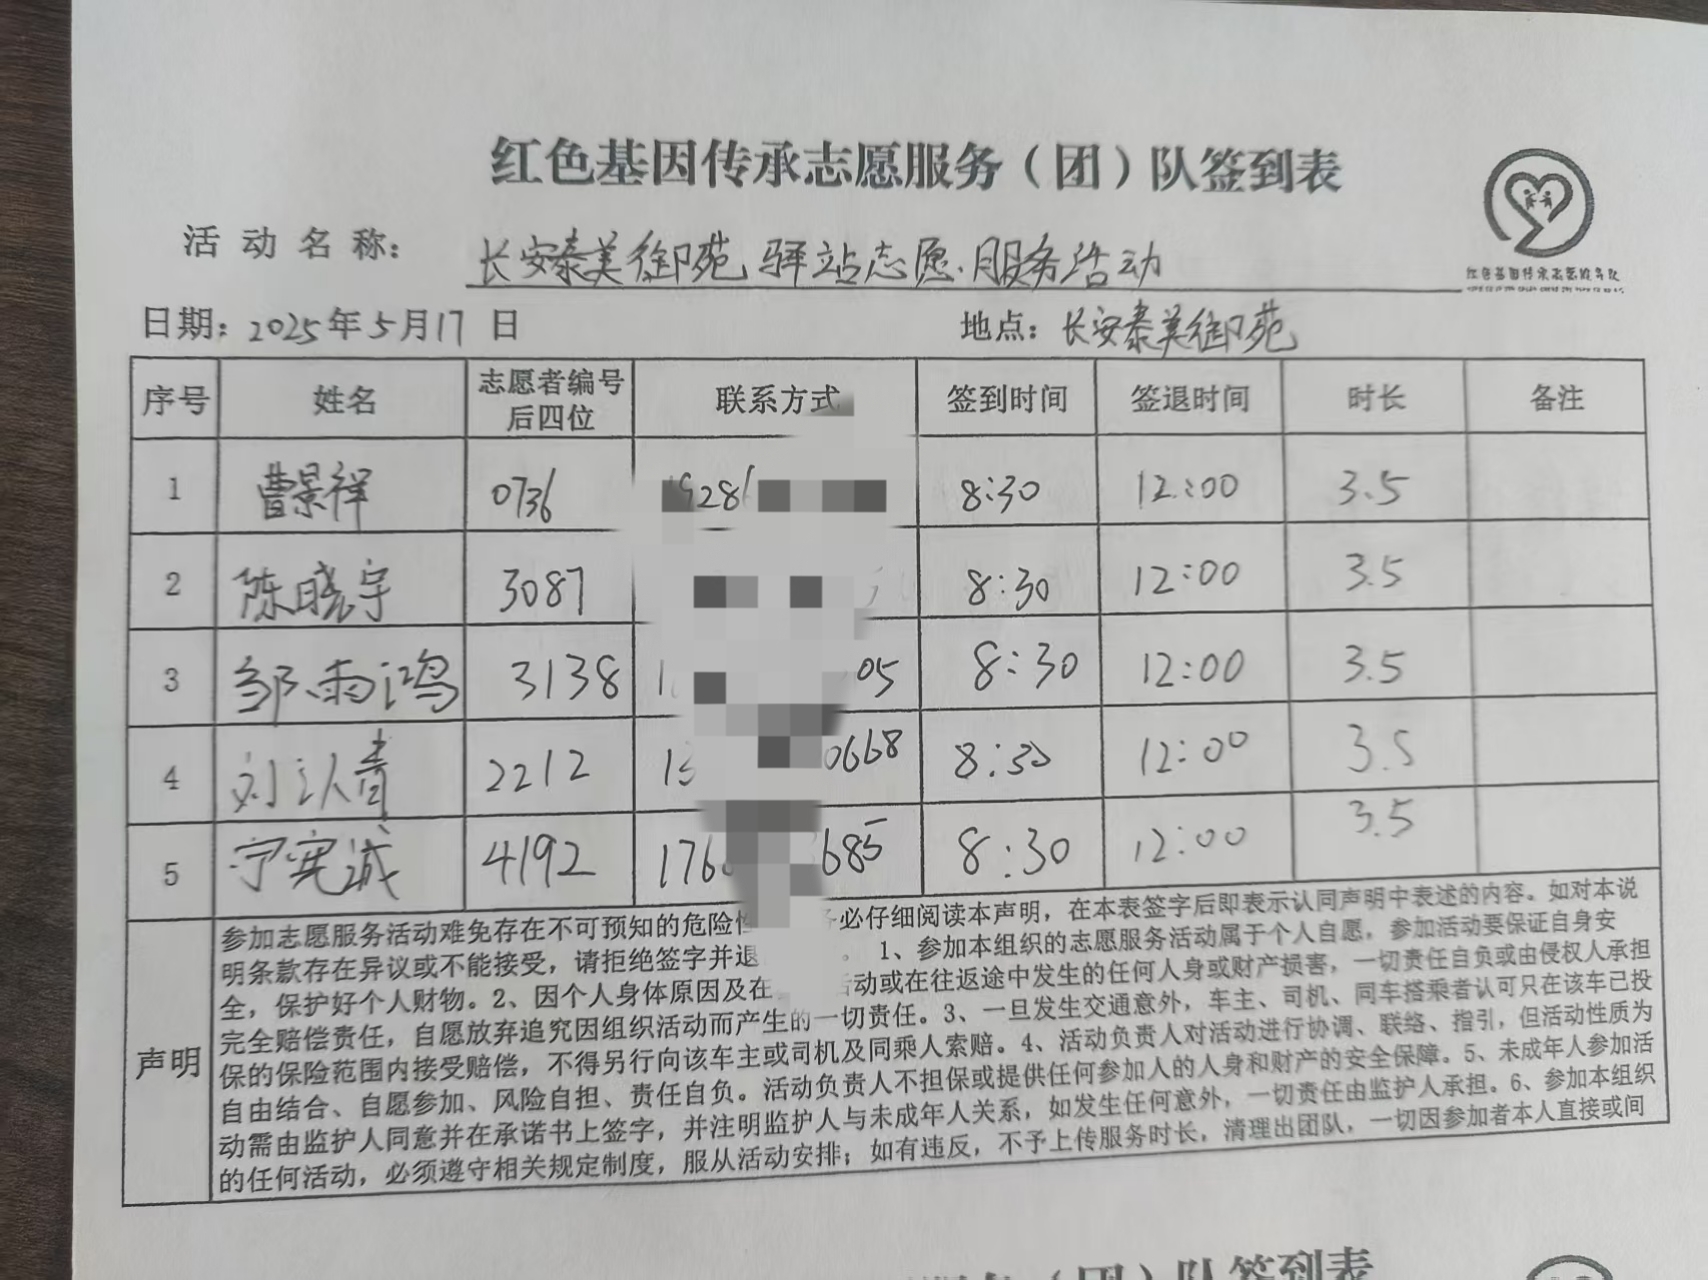 红色基因传承志愿服务（团）队签到表
活动名称： 长安泰美御苑驿站志愿服务活动
红色基因传承志愿服务队
日期：2025年5月17日 地点：长安泰美御苑
序号 姓名 志愿者编号后四位 联系方式 签到时间 签退时间 时长 备注
1 曹景祥 0736 928 8:30 12:00 3.5
2 陈晓宇 3087 8:30 12:00 3.5
3 邹雨鸿 3138 1 05 8:30 12:00 3.5
4 刘 青 2212 15 0668 8:30 12:00 3.5
5 宁宪诚 4192 176 685 8:30 12:00 3.5
声明
参加志愿服务活动难免存在不可预知的危险性 必仔细阅读本声明，在本表签字后即表示认同声明中表述的内容。如对本说
明条款存在异议或不能接受，请拒绝签字并退 。1、参加本组织的志愿服务活动属于个人自愿，参加活动要保证自身安
全，保护好个人财物。2、因个人身体原因及在 活动或在往返途中发生的任何人身或财产损害，一切责任自负或由侵权人承担
完全赔偿责任，自愿放弃追究因组织活动而产生的一切责任。3、一旦发生交通意外，车主、司机、同车搭乘者认可只在该车已投
保的保险范围内接受赔偿，不得另行向该车主或司机及同乘人索赔。4、活动负责人对活动进行协调、联络、指引，但活动性质为
自由结合、自愿参加、风险自担、责任自负。活动负责人不担保或提供任何参加人的人身和财产的安全保障。5、未成年人参加活
动需由监护人同意并在承诺书上签字，并注明监护人与未成年人关系，如发生任何意外，一切责任由监护人承担。6、参加本组织
的任何活动，必须遵守相关规定制度，服从活动安排；如有违反，不予上传服务时长，清理出团队，一切因参加者本人直接或间
服务（团）队签到表